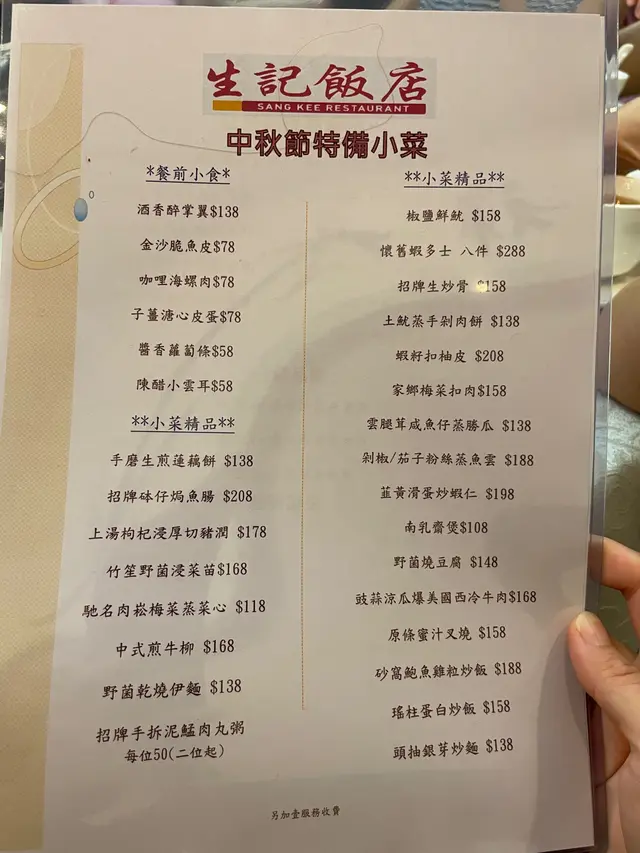 生記飯店
SANG KEE RESTAURANT
中秋節特備小菜
*餐前小食*
酒香醉掌翼$138
金沙脆魚皮$78
咖哩海螺肉$78
子薑溏心皮蛋$78
醬香蘿蔔條$58
陳醋小雲耳$58
**小菜精品**
手磨生煎蓮藕餅 $138
招牌砵仔焗魚腸 $208
上湯枸杞浸厚切豬潤 $178
竹笙野菌浸菜苗$168
馳名肉崧梅菜蒸菜心 $118
中式煎牛柳 $168
野菌乾燒伊麵 $138
招牌手拆泥鯭肉丸粥
每位50(二位起)
**小菜精品**
椒鹽鮮魷 $158
懷舊蝦多士 八件 $288
招牌生炒骨 $158
土魷蒸手剁肉餅 $138
蝦籽扣柚皮 $208
家鄉梅菜扣肉$158
雲腿茸咸魚仔蒸勝瓜 $138
剁椒/茄子粉絲蒸魚雲 $188
韮黃滑蛋炒蝦仁 $198
南乳齋煲$108
野菌燒豆腐 $148
豉蒜涼瓜爆美國西冷牛肉$168
原條蜜汁叉燒 $158
砂窩鮑魚雞粒炒飯 $188
瑤柱蛋白炒飯 $158
頭抽銀芽炒麵 $138
另加壹服務收費